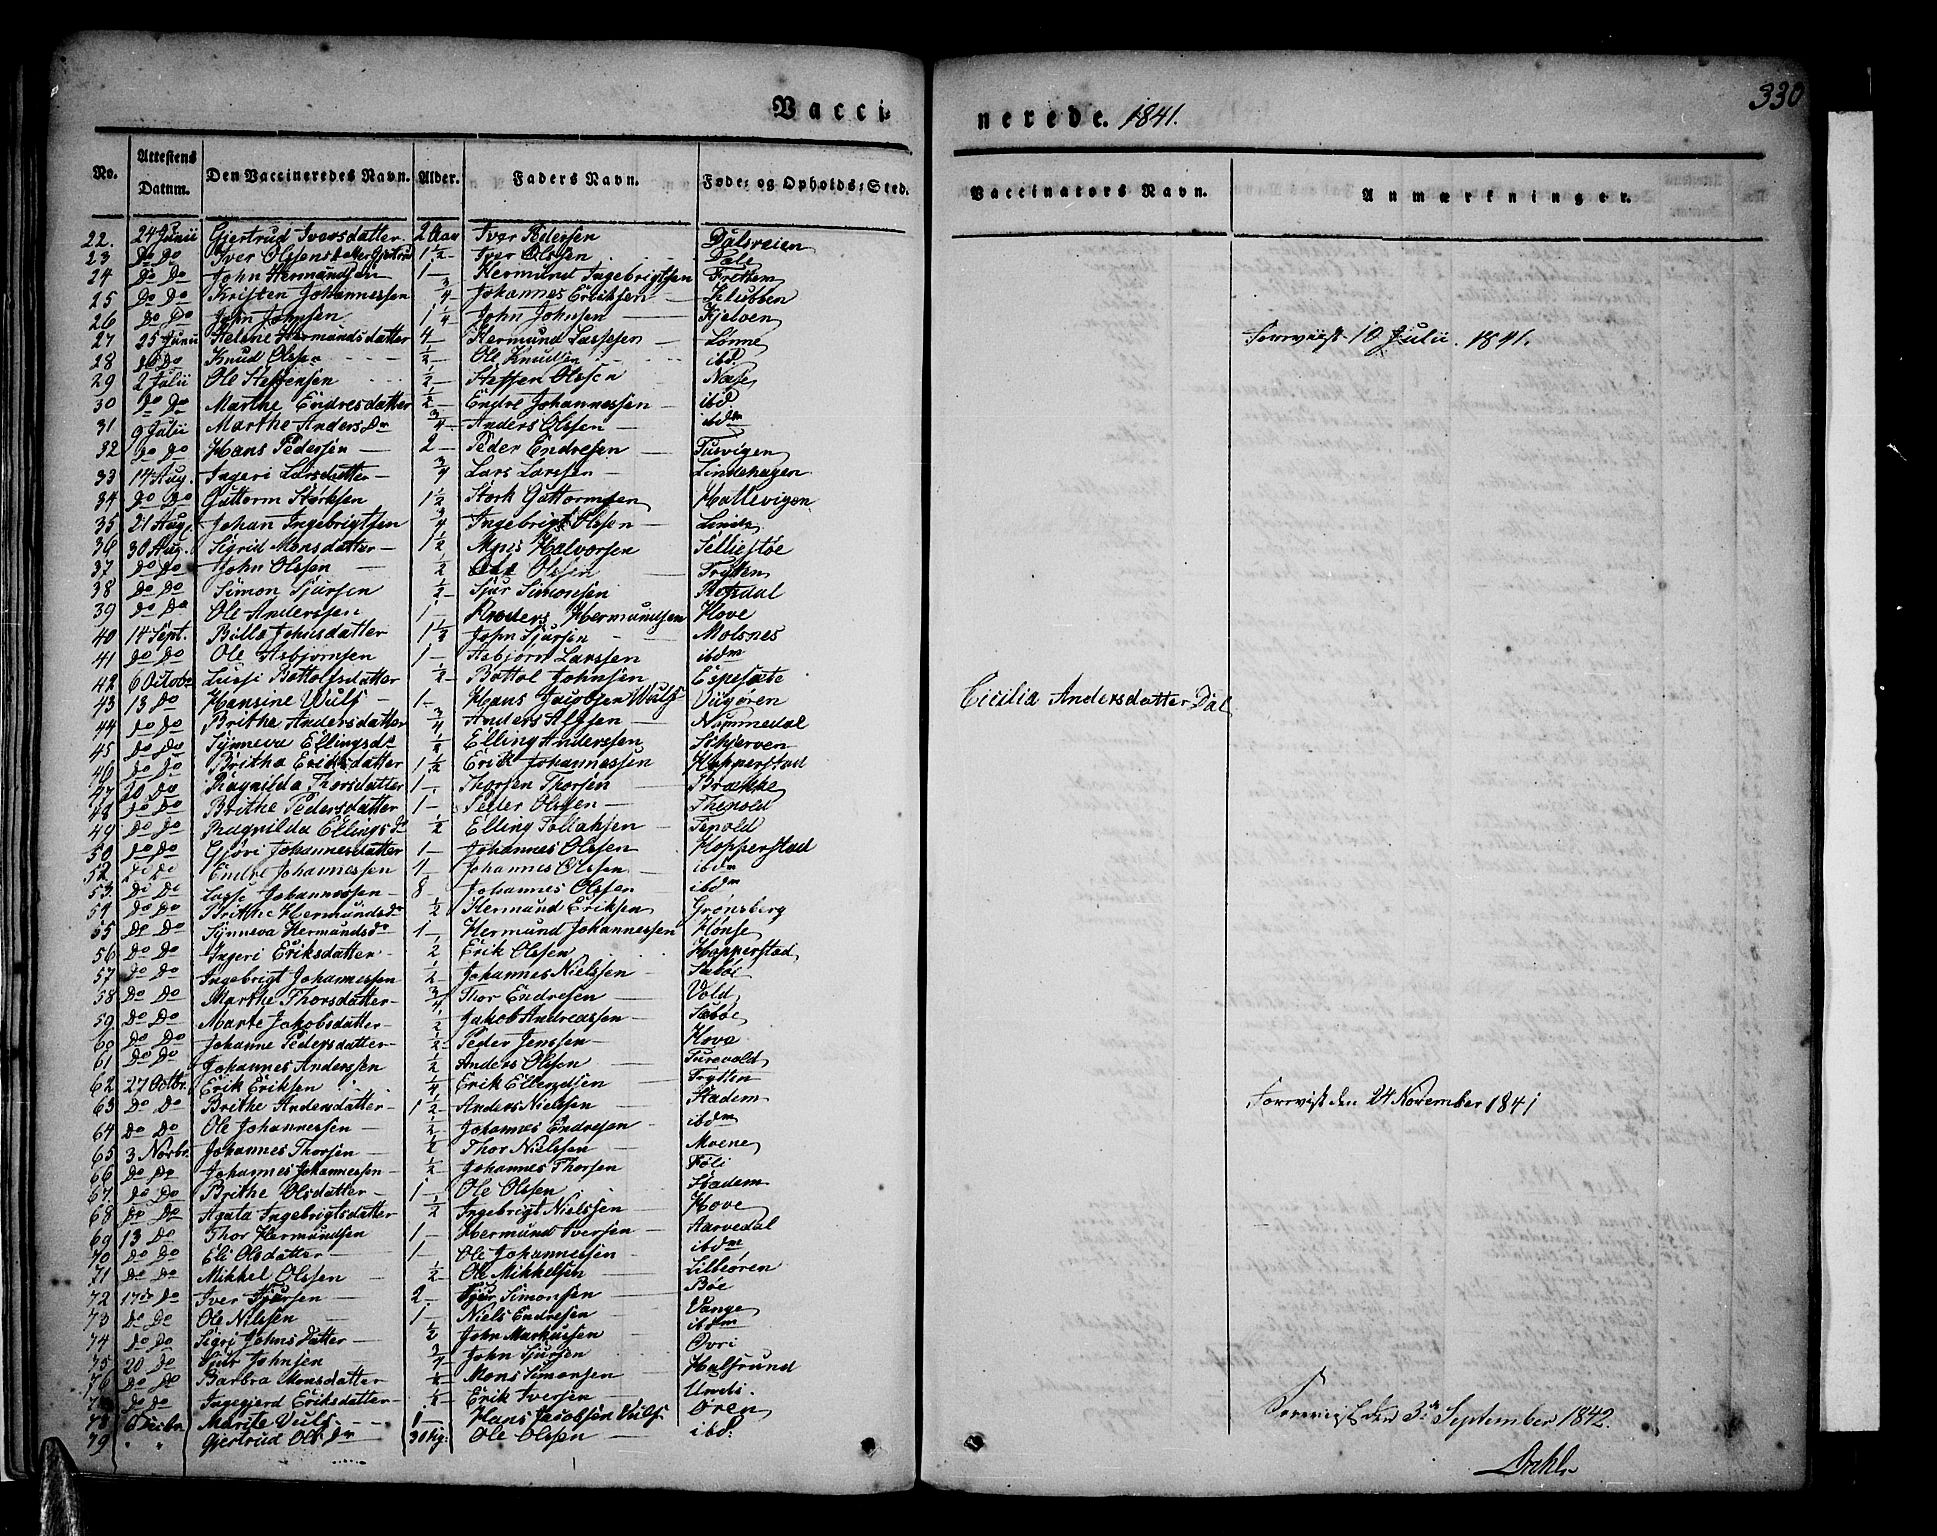 330
Vacci- nerede. 1841.
No. Attestens Datum. Den Vaccineredes Navn. Alder. Faders Navn. Føde- og Opholds-Sted. Vaccinators Navn. Anmærkninger.
22. 24 Junii Gjertrud Iversdatter 2 Aar Iver Pedersen Dalsveien
23 Do Do Iver Olssens datter Gjertrud 1½ Iver Olssen Dale
24 Do Do John Hermundsen 1 Hermund Ingebrigtsen Frettem
25 Do Do Kristen Johannessen ¾ Johannes Eriksen Klubben
26 Do Do John Johnsen 1¼ John Johnsen Kjelven
27 25 Junii Helene Hermundsdatter 4 Hermund Larssen Lønne Forevist 10 Julii 1841.
28 Do Do Knud Olssen ½ Ole Knudsen ibd
29 2 Julii Ole Steffensen ½ Steffen Olssen Nase
30 Do Do Marthe Endresdatter ½ Endre Johannessen ibd
31 9 Julii Marthe Anders Dr ¾ Anders Olssen ibdm
32 Do Do Hans Pedersen 2 Peder Endresen Turvigen
33 14 Aug. Ingeri Larsdatter ¾ Lars Larssen Lindehagen
34 Do Do Guttorm Størksen 1½ Størk Guttormsen Hallevigen
35 21 Aug Johan Ingebrigtsen ¾ Ingebrigt Olssen Linde
36 30 Aug. Sigrid Monsdatter 1½ Mons Halvorsen Selliestøe
37 Do Do John Olssen ½ Ole Olssen Trytten
38 Do Do Simon Sjursen ½ Sjur Simonsen
39 Do Do Ole Anderssen 1 Hermundsen Hove
40 14 Sept. Johnsdatter 1½ John Sjursen Molsnes
41 Do Do Ole Asbjørnsen 1 Asbjørn Larssen ibdm
42 6 Octobr Lussi Bottolfsdatter ½ Bottol Johnsen Espesate
43 13 Do Hansine Wulf 1 Hans Jacobsen Wulf Vigøren Cicilia Andersdatter Dal
44 Do Do Brithe Andersdatter ¾ Anders Nummedal
45 Do Do Synneva Ellingsdr ½ Elling Anderssen Schjerven
46 Do Do Britha Eriksdatter 1½ Erik Johannessen Hopperstad
47 20 Do Ragnilda Thorsdatter 1 Thorsen Thorsen Brække
48 Do Do Brithe Pedersdatter 1 Peder Olssen Thenold
49 Do Do Ragnilda Ellings Dr ½ Elling Tollaksen Tenold
50 Do Do Gjøri Johannesdatter 1 Johannes Olssen Hopperstad
52 Do Do Endre Johannessen 4 Johannes Olssen ibdm
53 Do Do Lasse Johannessen 8 Johannes Olssen ibdm
54 Do Do Brithe Hermundsdr ½ Hermund Eriksen Grønsberg
55 Do Do Synneva Hermundsdr 1 Hermund Johannessen Hønse
56 Do Do Ingeri Eriksdatter ½ Erik Olssen Hopperstad
57 Do Do Ingebrigt Johannessen ½ Johannes Nielssen Sæbøe
58 Do Do Marthe Thorsdatter ¾ Thor Endresen Vold
59 Do Do Marte Jakobsdatter ½ Jakob Andreassen Sæbøe
60 Do Do Johanne Pedersdatter ½ Peder Jenssen Hove
61 Do Do Johannes Anderssen ½ Anders Olssen Turevold
62 27 Octbr. Erik Eriksen ¼ Erik Ellendsen Trytten
63 Do Do Brithe Andersdatter 1½ Anders Nielssen Stadem Forevist den 24 November 1841
64 Do Do Ole Johannessen ½ Johannes Endresen ibdm
65 3 Novbr. Johannes Thorsen ½ Thor Nielssen Moene
66 Do Do Johannes Johannessen ½ Johannes Thorsen Føli
67. Do Do Brithe Olsdatter 1 Ole Olssen Stadem
68 Do Do Agata Ingebrigtsdatter ½ Ingebrigt Nielssen Hove
69 13 Do Thor Hermundsen 1 Hermund Iversen Aarvedal
70 Do Do Eli Olsdatter 1 Ole Johannessen ibdm
71 Do Do Mikkel Olssen ½ Ole Mikkelsen Lilleøren
72 17de Do Iver Sjursen 2 Sjur Simonsen Bøe
73 Do Do Ole Nilssen 1 Niels Endresen Vange
74 Do Do Sigri Johns Datter ½ John Markussen ibdm
75 20 Do Sjur Johnsen ¾ John Sjursen Øvri
76 Do Do Barbra Monsdatter ½ Mons Simonsen Halsrund
Do Do Ingegjerd Eriksdatter ½ Erik Iversen Undi.
78 6 Decbr Marite Vulf 1 Hans Jacobsen Vulf Øren Forevist den 3de September 1842.
79 " " Gjertrud Ols Dr 30 Ug: Ole Olssen ibd:
Dahl